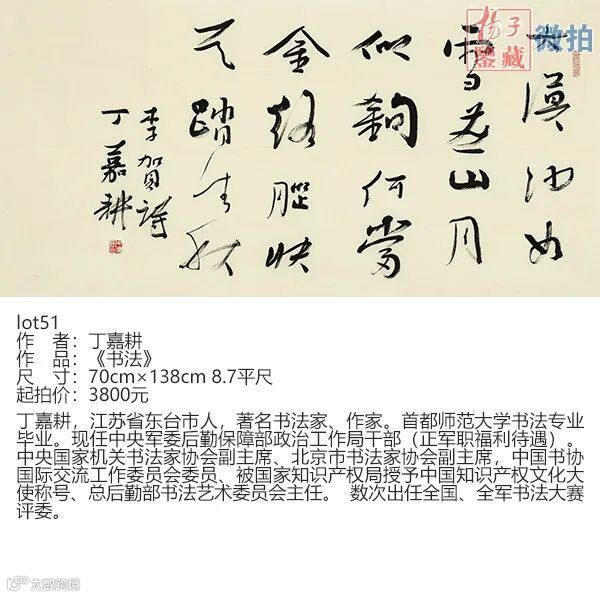 大漠沙如
雪燕山月
似鉤何當
金絡腦快
走踏清秋
李賀詩
丁嘉耕
揚子
鉴藏
微拍
lot51
作 者：丁嘉耕
作 品：《书法》
尺 寸：70cm×138cm 8.7平尺
起拍价：3800元
丁嘉耕，江苏省东台市人，著名书法家、作家。首都师范大学书法专业
毕业。现任中央军委后勤保障部政治工作局干部（正军职福利待遇）。
中央国家机关书法家协会副主席、北京市书法家协会副主席，中国书协
国际交流工作委员会委员、被国家知识产权局授予中国知识产权文化大
使称号、总后勤部书法艺术委员会主任。 数次出任全国、全军书法大赛
评委。